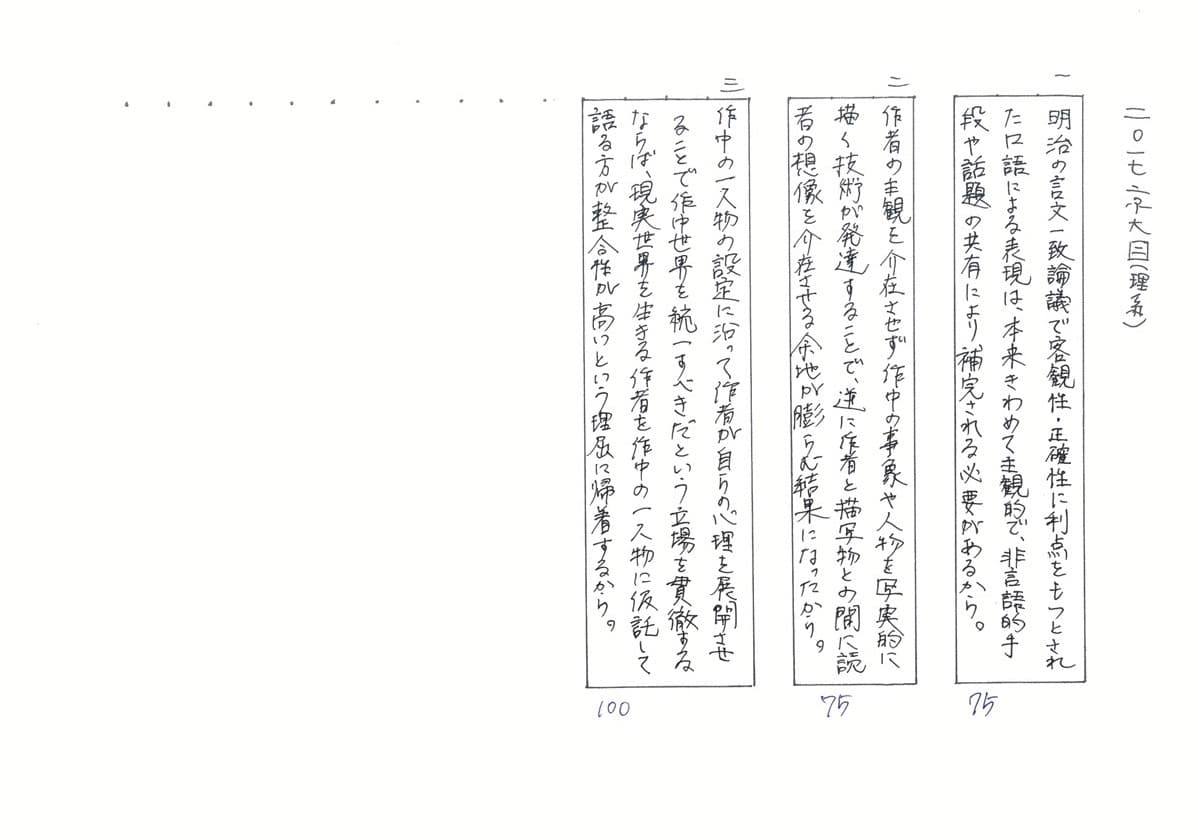 二〇一七 京大 二(理系)
一
明治の言文一致論議で客観性・正確性に利点をもつとされ
た口語による表現は、本来きわめて主観的で、非言語的手
段や話題の共有により補完される必要があるから。
75
二
作者の主観を介在させず作中の事象や人物を写実的に
描く技術が発達することで、逆に作者と描写物との間に読
者の想像を介在させる余地が膨らむ結果になったから。
75
三
作中の一人物の設定に沿って作者が自らの心理を展開させ
ることで作中世界を統一すべきだという立場を貫徹する
ならば、現実世界を生きる作者を作中の一人物に仮託して
語る方が整合性が高いという理屈に帰着するから。
100